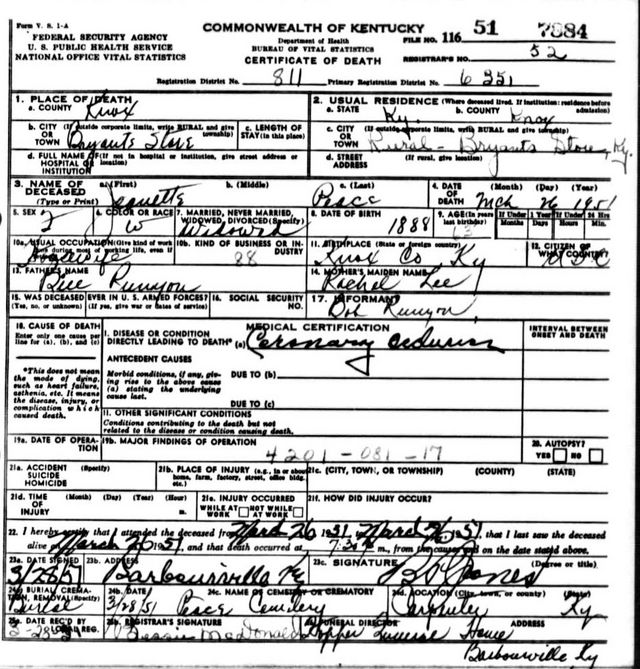 Form V. S. 1-A
FEDERAL SECURITY AGENCY
U. S. PUBLIC HEALTH SERVICE
NATIONAL OFFICE VITAL STATISTICS
COMMONWEALTH OF KENTUCKY
Department of Health
BUREAU OF VITAL STATISTICS
CERTIFICATE OF DEATH
FILE NO. 116 51 7884
REGISTRAR'S NO. 52
Registration District No. 811 Primary Registration District No. 6351
1. PLACE OF DEATH
a. COUNTY Knox
2. USUAL RESIDENCE (Where deceased lived. If institution: residence before admission)
a. STATE Ky. b. COUNTY Knox
b. CITY (If outside corporate limits, write RURAL and give township)
OR TOWN Bryants Store
c. LENGTH OF STAY (in this place)
c. CITY (If outside corporate limits, write RURAL and give township)
OR TOWN Rural - Bryants Store, Ky.
d. FULL NAME OF (If not in hospital or institution, give street address or location)
HOSPITAL OR INSTITUTION
d. STREET ADDRESS (If rural, give location)
3. NAME OF DECEASED (Type or Print)
a. (First) Jeanette b. (Middle) c. (Last) Peace
4. DATE OF DEATH (Month) (Day) (Year) Mch 26 1951
5. SEX F
6. COLOR OR RACE W
7. MARRIED, NEVER MARRIED, WIDOWED, DIVORCED (Specify) Widowed
8. DATE OF BIRTH 1888
9. AGE (In years last birthday) 63 If Under 1 Year Months Days If Under 24 Hrs Hours Min.
10a. USUAL OCCUPATION (Give kind of work done during most of working life, even if retired) Housewife
10b. KIND OF BUSINESS OR INDUSTRY 88
11. BIRTHPLACE (State or foreign country) Knox Co, Ky
12. CITIZEN OF WHAT COUNTRY?
13. FATHER'S NAME Bill Runyon
14. MOTHER'S MAIDEN NAME Rachel Lee
15. WAS DECEASED EVER IN U. S. ARMED FORCES? (Yes, no, or unknown) (If yes, give war or dates of service)
16. SOCIAL SECURITY NO.
17. INFORMANT Bob Runyon
18. CAUSE OF DEATH
Enter only one cause per line for (a), (b), and (c)
MEDICAL CERTIFICATION
INTERVAL BETWEEN ONSET AND DEATH
I. DISEASE OR CONDITION DIRECTLY LEADING TO DEATH* (a) Coronary
*This does not mean the mode of dying, such as heart failure, asthenia, etc. It means the disease, injury, or complication which caused death.
ANTECEDENT CAUSES
Morbid conditions, if any, giving rise to the above cause (a) stating the underlying cause last.
DUE TO (b)
DUE TO (c)
II. OTHER SIGNIFICANT CONDITIONS
Conditions contributing to the death but not related to the disease or condition causing death.
19a. DATE OF OPERATION
19b. MAJOR FINDINGS OF OPERATION
4201-081-17
20. AUTOPSY? YES NO
21a. ACCIDENT SUICIDE HOMICIDE (Specify)
21b. PLACE OF INJURY (e.g., in or about home, farm, factory, street, office bldg. etc.)
21c. (CITY, TOWN, OR TOWNSHIP) (COUNTY) (STATE)
21d. TIME OF INJURY (Month) (Day) (Year) (Hour) m.
21e. INJURY OCCURRED WHILE AT WORK NOT WHILE AT WORK
21f. HOW DID INJURY OCCUR?
22. I hereby certify that I attended the deceased from March 26 1951 to March 26 1951, that I last saw the deceased
alive on March 26 1951, and that death occurred at 7:30 m., from the causes and on the date stated above.
23a. DATE SIGNED 3/28/51
23b. ADDRESS Barbourville Ky
23c. SIGNATURE Jones (Degree or title)
24a. BURIAL, CREMATION, REMOVAL (Specify) Burial
24b. DATE 3/28/51
24c. NAME OF CEMETERY OR CREMATORY Peace Cemetery
24d. LOCATION (City, town, or county) (State) Ky
25. DATE REC'D BY LOCAL REG.
26. REGISTRAR'S SIGNATURE Bessie McDonald
FUNERAL DIRECTOR ADDRESS
Hopper Funeral Home
Barbourville Ky